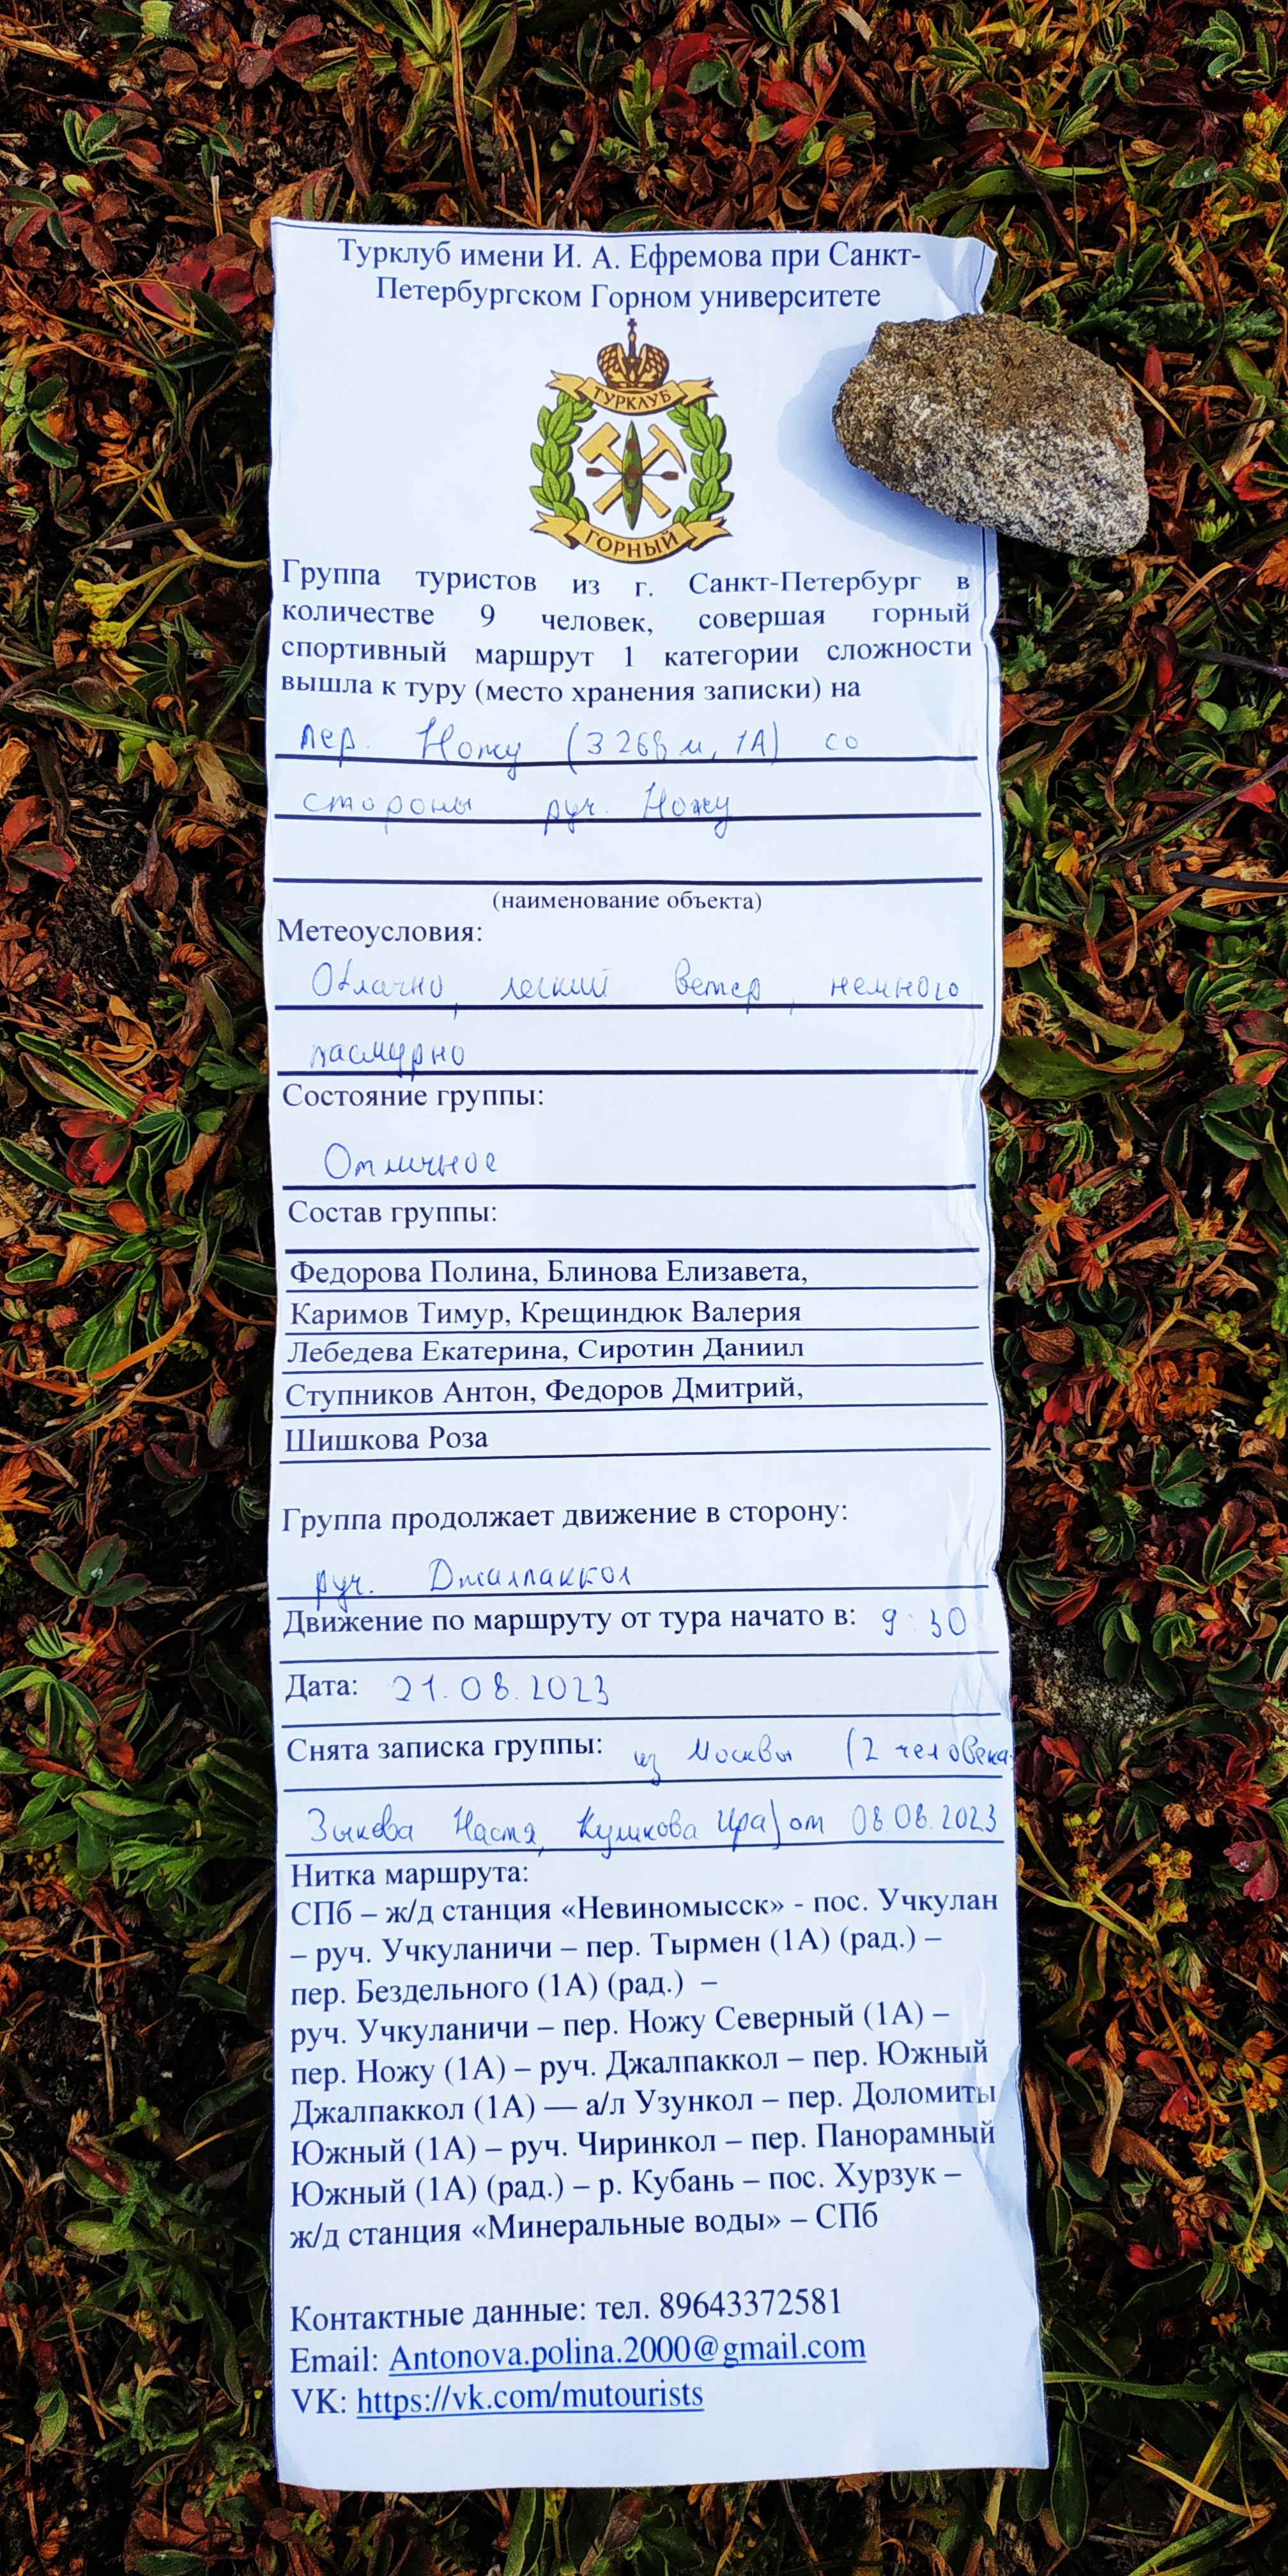 Турклуб имени И. А. Ефремова при Санкт-
Петербургском Горном университете
ТУРКЛУБ
ГОРНЫЙ
Группа туристов из г. Санкт-Петербург в
количестве 9 человек, совершая горный
спортивный маршрут 1 категории сложности
вышла к туру (место хранения записки) на
пер. Ножу (3268 м, 1А) со
стороны руч. Ножу
(наименование объекта)
Метеоусловия:
Облачно, легкий ветер, немного
пасмурно
Состояние группы:
Отличное
Состав группы:
Федорова Полина, Блинова Елизавета,
Каримов Тимур, Крещиндюк Валерия
Лебедева Екатерина, Сиротин Даниил
Ступников Антон, Федоров Дмитрий,
Шишкова Роза
Группа продолжает движение в сторону:
руч. Джалпаккол
Движение по маршруту от тура начато в: 9:30
Дата: 21.08.2023
Снята записка группы: из Москвы (2 человека
Зыкова Настя, Куликова Ира) от 08.08.2023
Нитка маршрута:
СПб – ж/д станция «Невиномысск» - пос. Учкулан
– руч. Учкуланичи – пер. Тырмен (1А) (рад.) –
пер. Бездельного (1А) (рад.) –
руч. Учкуланичи – пер. Ножу Северный (1А) –
пер. Ножу (1А) – руч. Джалпаккол – пер. Южный
Джалпаккол (1А) — а/л Узункол – пер. Доломиты
Южный (1А) – руч. Чиринкол – пер. Панорамный
Южный (1А) (рад.) – р. Кубань – пос. Хурзук –
ж/д станция «Минеральные воды» – СПб
Контактные данные: тел. 89643372581
Email: Antonova.polina.2000@gmail.com
VK: https://vk.com/mutourists